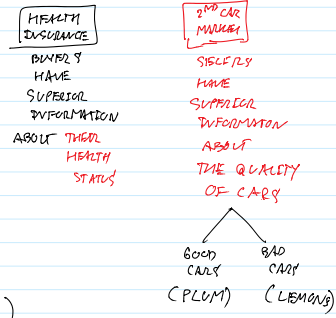 HEALTH
INSURANCE
BUYERS
HAVE
SUPERIOR
INFORMATION
ABOUT THEIR
HEALTH
STATUS
2ND CAR
MARKET
SELLERS
HAVE
SUPERIOR
INFORMATION
ABOUT
THE QUALITY
OF CARS
GOOD
CARS
(PLUM)
BAD
CARS
(LEMONS)
)